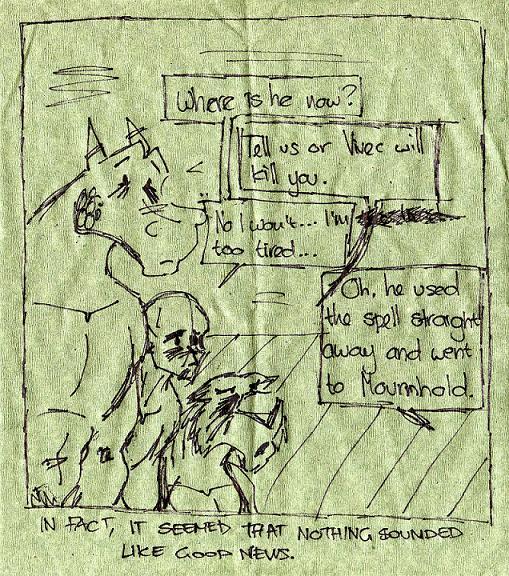 Where is he now?
Tell us or Vivec will
kill you.
No I won't... I'm
too tired...
Oh, he used
the spell straight
away and went
to Mournhold.
IN FACT, IT SEEMED THAT NOTHING SOUNDED
LIKE GOOD NEWS.